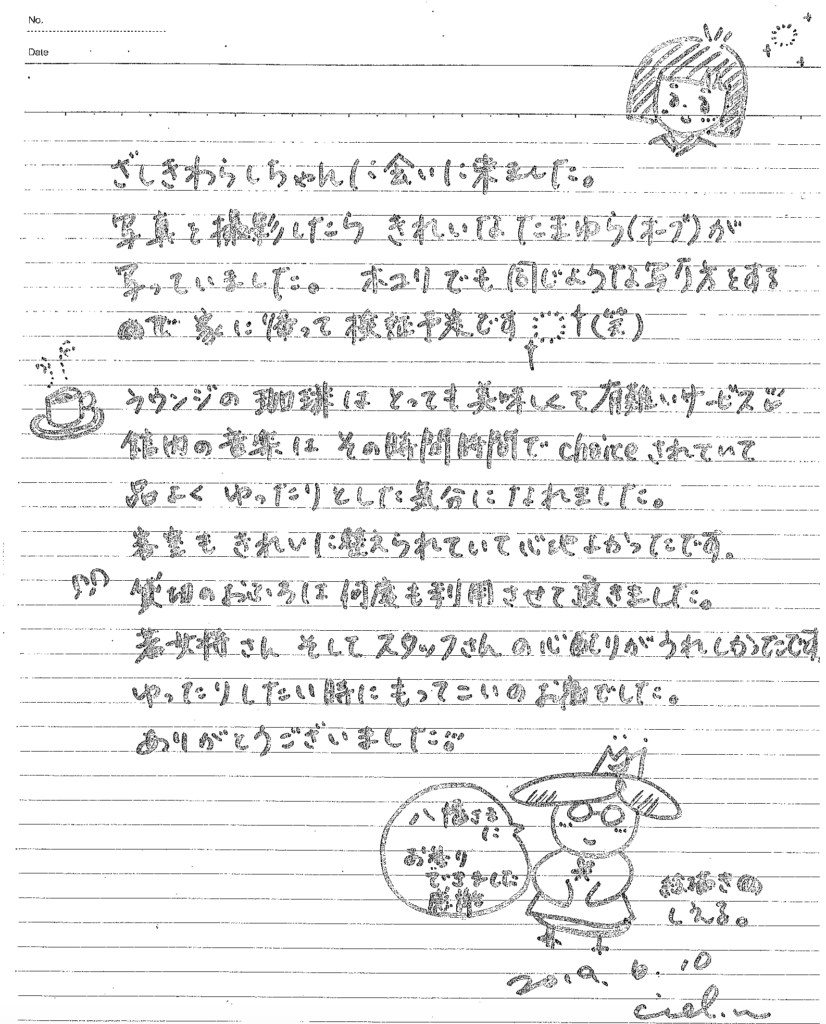 No.
Date
ざしきわらしちゃんに会いに来ました。
写真を撮影したら きれいなたまゆら(オーブ)が
写っていました。 ホコリでも同じような写り方をする
ので 家に帰って検証予定です (笑)
ラウンジの珈琲は とっても美味しくて有難いサービス
館内の音楽は その時間時間で choice されていて
品よく ゆったりとした気分になれました。
客室も きれいに整えられていて心地よかったです。
貸切のおふろは何度も利用させて頂きました。
若女将さん そして スタッフさんの心配りがうれしかったです
ゆったりしたい時に もってこいのお宿でした。
ありがとうございました
八幡さまに
お参り
できました
感謝
絵描きの
しえる。
2019. 6. 10
ciel.n